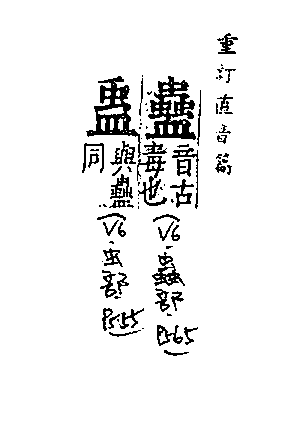 重訂直音篇
蠱
音古
毒也
(V6.蟲部.P565)
蛊
與蠱
同
(V6.虫部.P555)